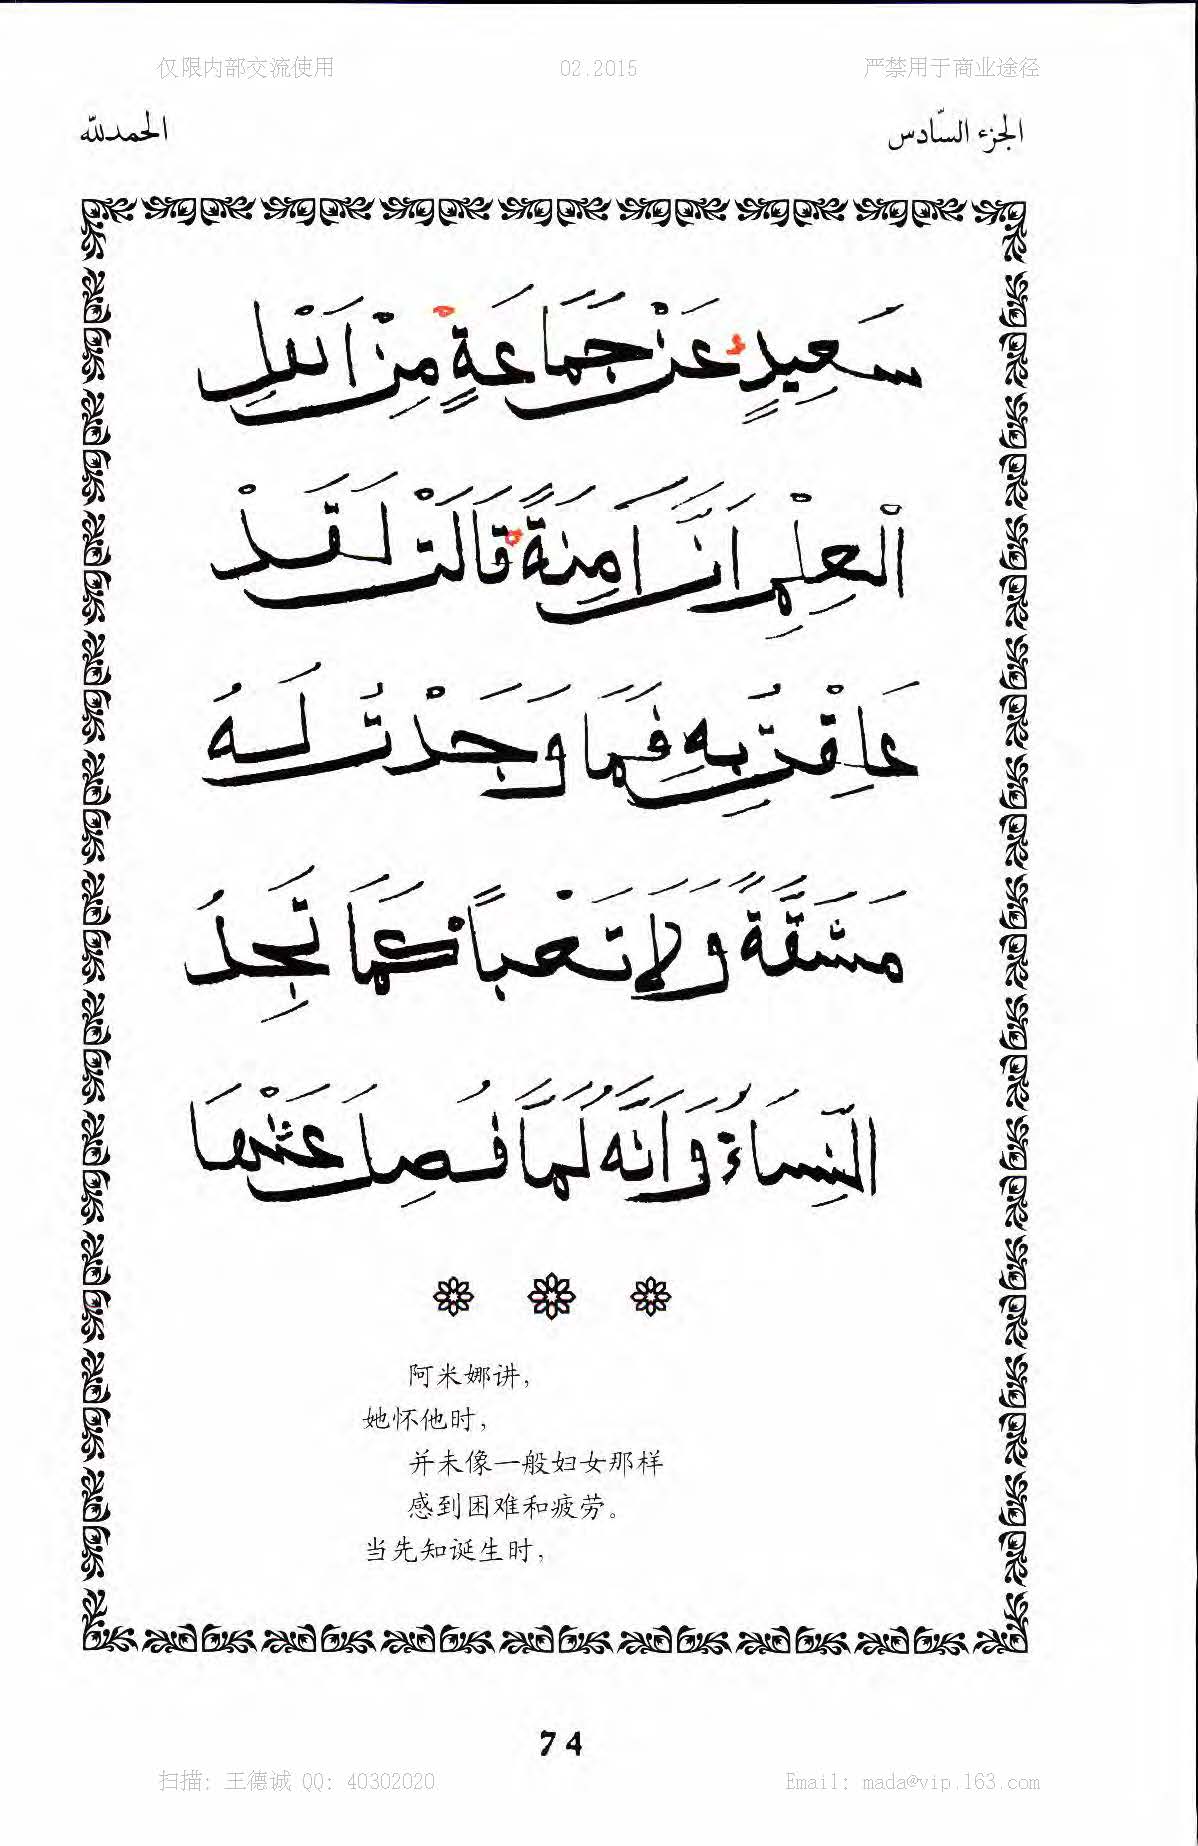 仅限内部交流使用 02.2015 严禁用于商业途径
الجزء السّادس الحمدلله
سَعِيدٍ عَنْ جَمَاعَةٍ مِنْ اَهْلِ
الْعِلْمِ اَنَّ اٰمِنَةً قَالَتْ لَقَدْ
عَلِقْتُ بِهِ فَمَا وَجَدْتُ لَهُ
مَشَقَّةً وَلَا تَعْباً كَمَا تَجِدُ
النِّسَاءُ وَاَنَّهُ لَمَّا فُصِلَ عَنْهَا
阿米娜讲，
她怀他时，
并未像一般妇女那样
感到困难和疲劳。
当先知诞生时，
74
扫描: 王德诚 QQ: 40302020 Email: mada@vip.163.com